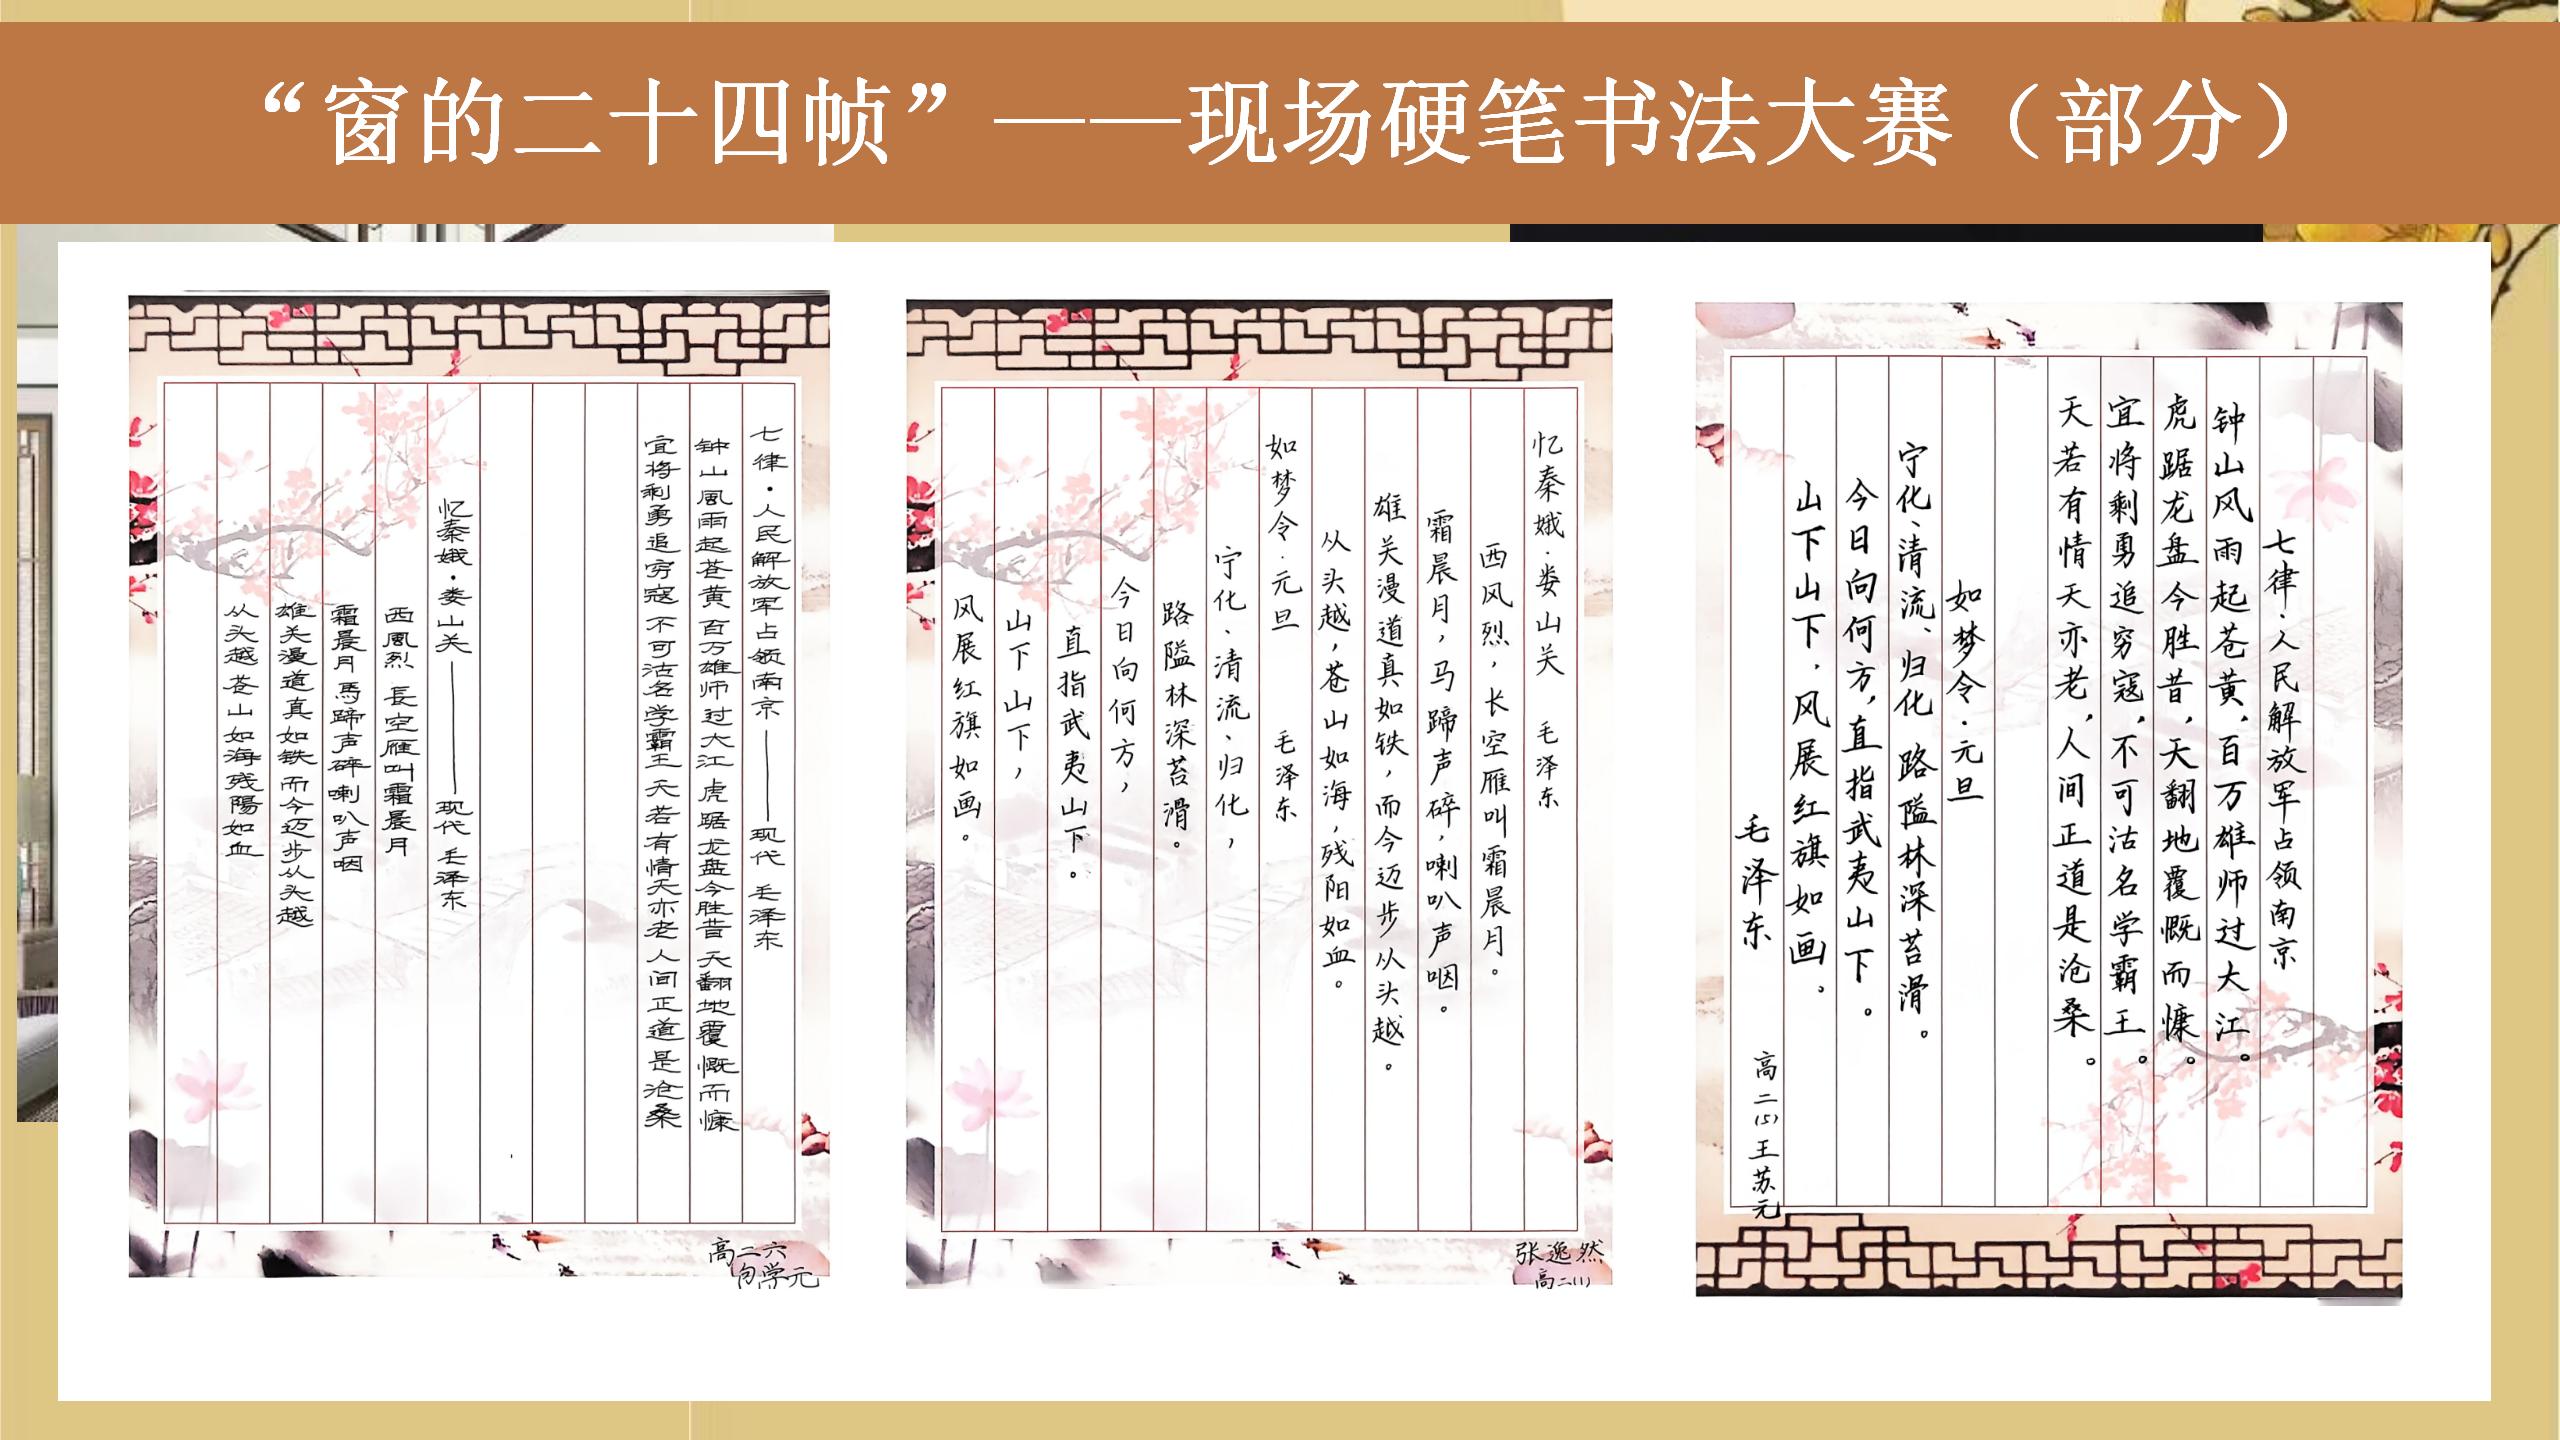 “窗的二十四帧”——现场硬笔书法大赛（部分）
七律·人民解放军占领南京——现代 毛泽东
钟山風雨起苍黄 百万雄师过大江 虎踞龙盘今胜昔 天翻地覆慨而慷
宜将剩勇追穷寇 不可沽名学霸王 天若有情天亦老 人间正道是沧桑
忆秦娥·娄山关——现代 毛泽东
西風烈 長空雁叫霜晨月
霜晨月 馬蹄声碎 喇叭声咽
雄关漫道真如铁 而今迈步从头越
从头越 苍山如海 残陽如血
高二六
包学元
忆秦娥·娄山关 毛泽东
西风烈，长空雁叫霜晨月。
霜晨月，马蹄声碎，喇叭声咽。
雄关漫道真如铁，而今迈步从头越。
从头越，苍山如海，残阳如血。
如梦令·元旦 毛泽东
宁化、清流、归化，
路隘林深苔滑。
今日向何方，
直指武夷山下。
山下山下，
风展红旗如画。
张逸然
高二(1)
七律·人民解放军占领南京
钟山风雨起苍黄，百万雄师过大江。
虎踞龙盘今胜昔，天翻地覆慨而慷。
宜将剩勇追穷寇，不可沽名学霸王。
天若有情天亦老，人间正道是沧桑。
如梦令·元旦
宁化、清流、归化，路隘林深苔滑。
今日向何方，直指武夷山下。
山下山下，风展红旗如画。
毛泽东
高二(5)王苏元